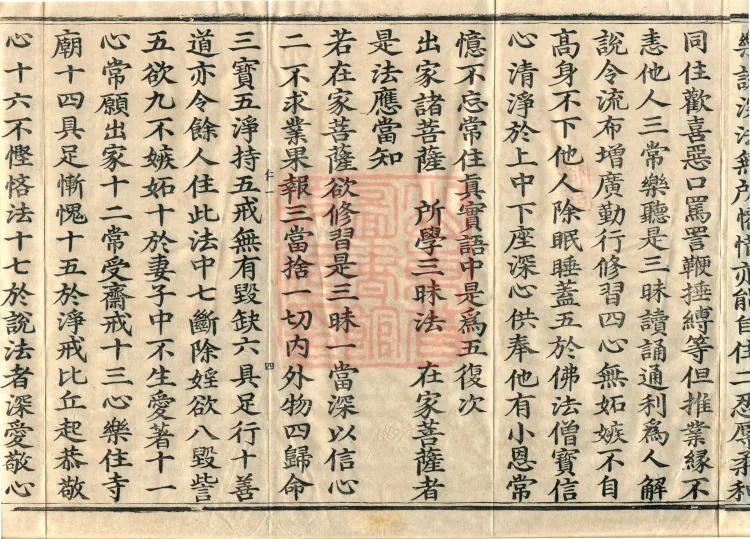 無所悋惜亦能自住二忍辱柔和
同住歡喜惡口罵詈鞭捶縛等但推業緣不
恚他人三常樂聽是三昧讀誦通利爲人解
說令流布增廣勤行修習四心無妬嫉不自
高身不下他人除眠睡蓋五於佛法僧寶信
心清淨於上中下座深心供奉他有小恩常
憶不忘常住眞實語中是爲五復次
出家諸菩薩　所學三昧法　在家菩薩者
是法應當知
若在家菩薩欲修習是三昧一當深以信心
二不求業果報三當捨一切內外物四歸命
仁一　四
三寶五淨持五戒無有毀缺六具足行十善
道亦令餘人住此法中七斷除婬欲八毀訾
五欲九不嫉妬十於妻子中不生愛著十一
心常願出家十二常受齋戒十三心樂住寺
廟十四具足慚愧十五於淨戒比丘起恭敬
心十六不慳悋法十七於說法者深愛敬心